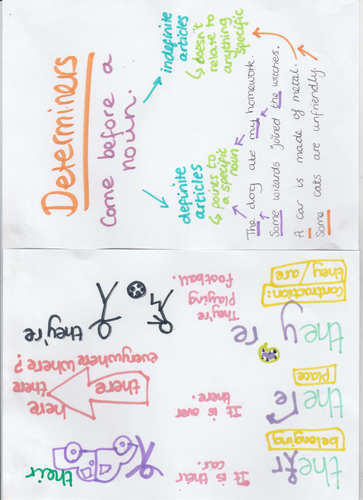 Determiners
Come before a
noun.
definite
articles
↳ points to
a specific
noun
indefinite
articles
↳ doesn't
relate to
anything
specific
The dog ate my homework.
Some wizards joined the witches.
A car is made of metal.
Some cats are unfriendly.
their
belonging
It is their
car.
their
there
Place
It is over
there.
here
there
everywhere where?
they're
contraction:
they/are
They're
Playing
football.
they're